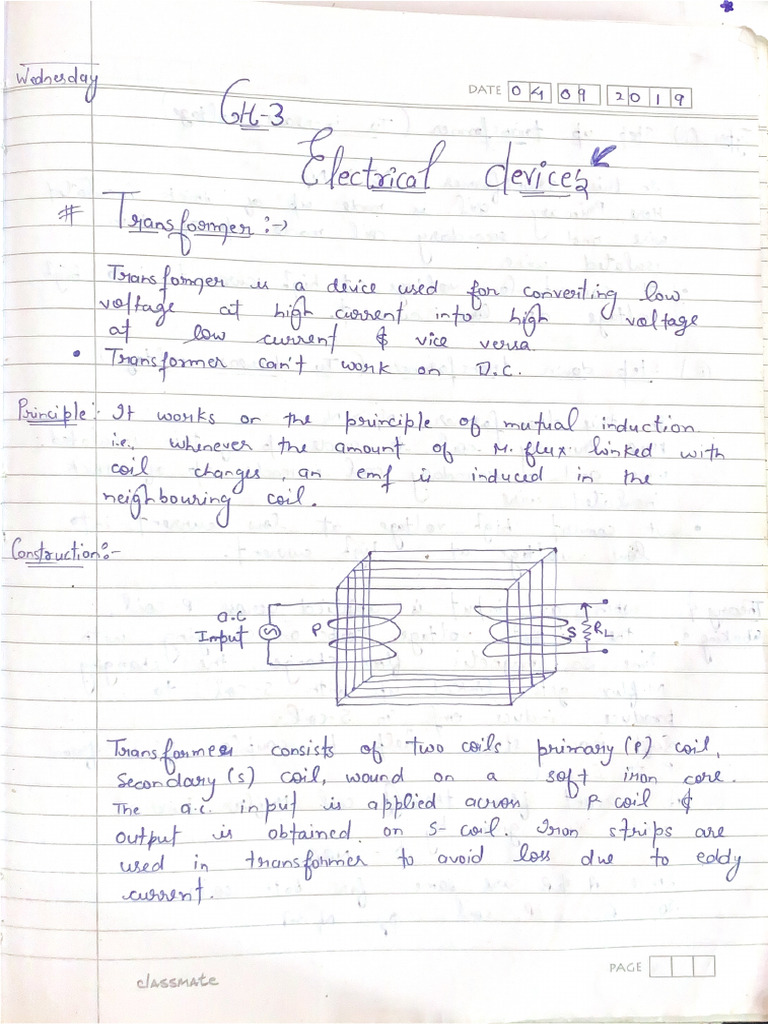 Wednesday
DATE 04 09 2019
CH-3
Electrical devices
# Transformer :->
Transformer is a device used for converting low
voltage at high current into high voltage
at low current & vice versa.
• Transformer can't work on D.C.
Principle:- It works on the principle of mutual induction
i.e., whenever the amount of M. flux linked with
coil changes, an emf is induced in the
neighbouring coil.
Construction:-
a.c
Input P S RL
Transformer consists of two coils primary (P) coil,
Secondary (S) coil, wound on a soft iron core.
The a.c. input is applied across P coil &
output is obtained on S-coil. Iron strips are
used in transformer to avoid loss due to eddy
current.
PAGE
classmate